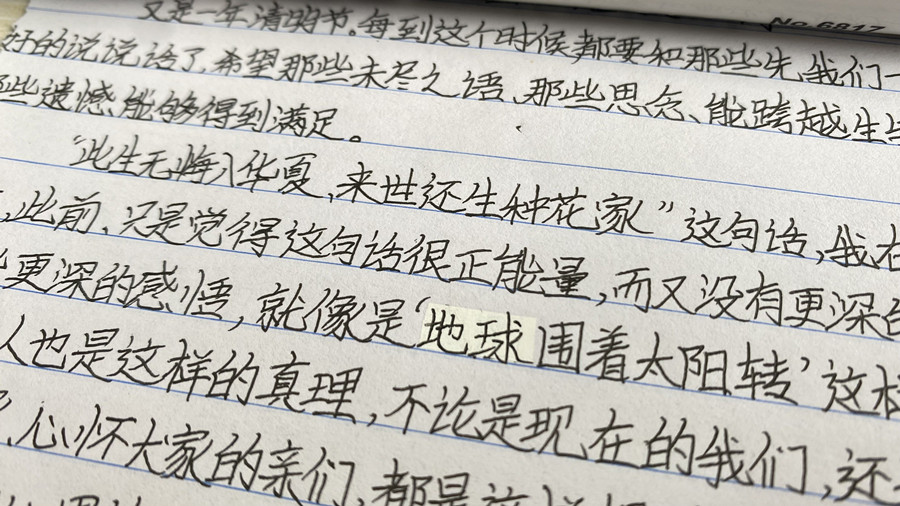 No 6817
又是一年清明节。每到这个时候都要和那些先我们一
好的说说话了,希望那些未尽之语、那些思念、能跨越生
些遗憾能够得到满足。
“此生无悔入华夏,来世还生种花家”这句话,我在
,此前,只是觉得这句话很正能量,而又没有更深
更深的感悟,就像是‘地球围着太阳转’这样
人也是这样的真理,不论是现在的我们,还
、心怀大家的亲们,都是这样